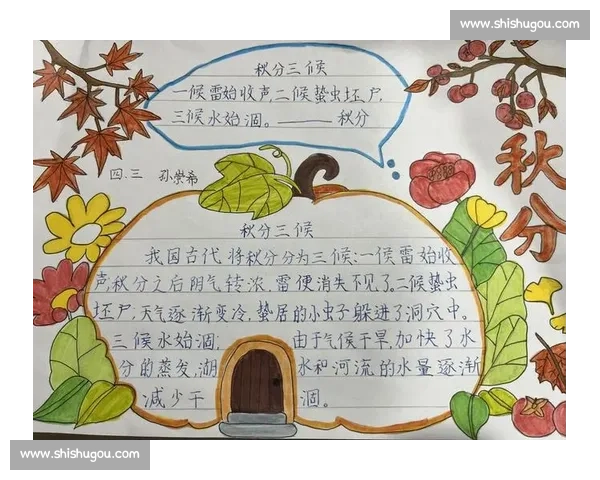 www.shishugou.com
秋分三候
一候雷始收声,二候蛰虫坯尸,
三候水始涸。——秋分
秋分
四.三 孙崇希
秋分三候
我国古代将秋分分为三候:一候雷始收
声,秋分之后阴气转浓,雷便消失不见了。二候蛰虫
坯尸;天气逐渐变冷,蛰居的小虫子躲进了洞穴中。
三候水始涸; 由于气候干旱,加快了水
分的蒸发,湖 水和河流的水量逐渐
减少干 涸。
www.shishugou.com